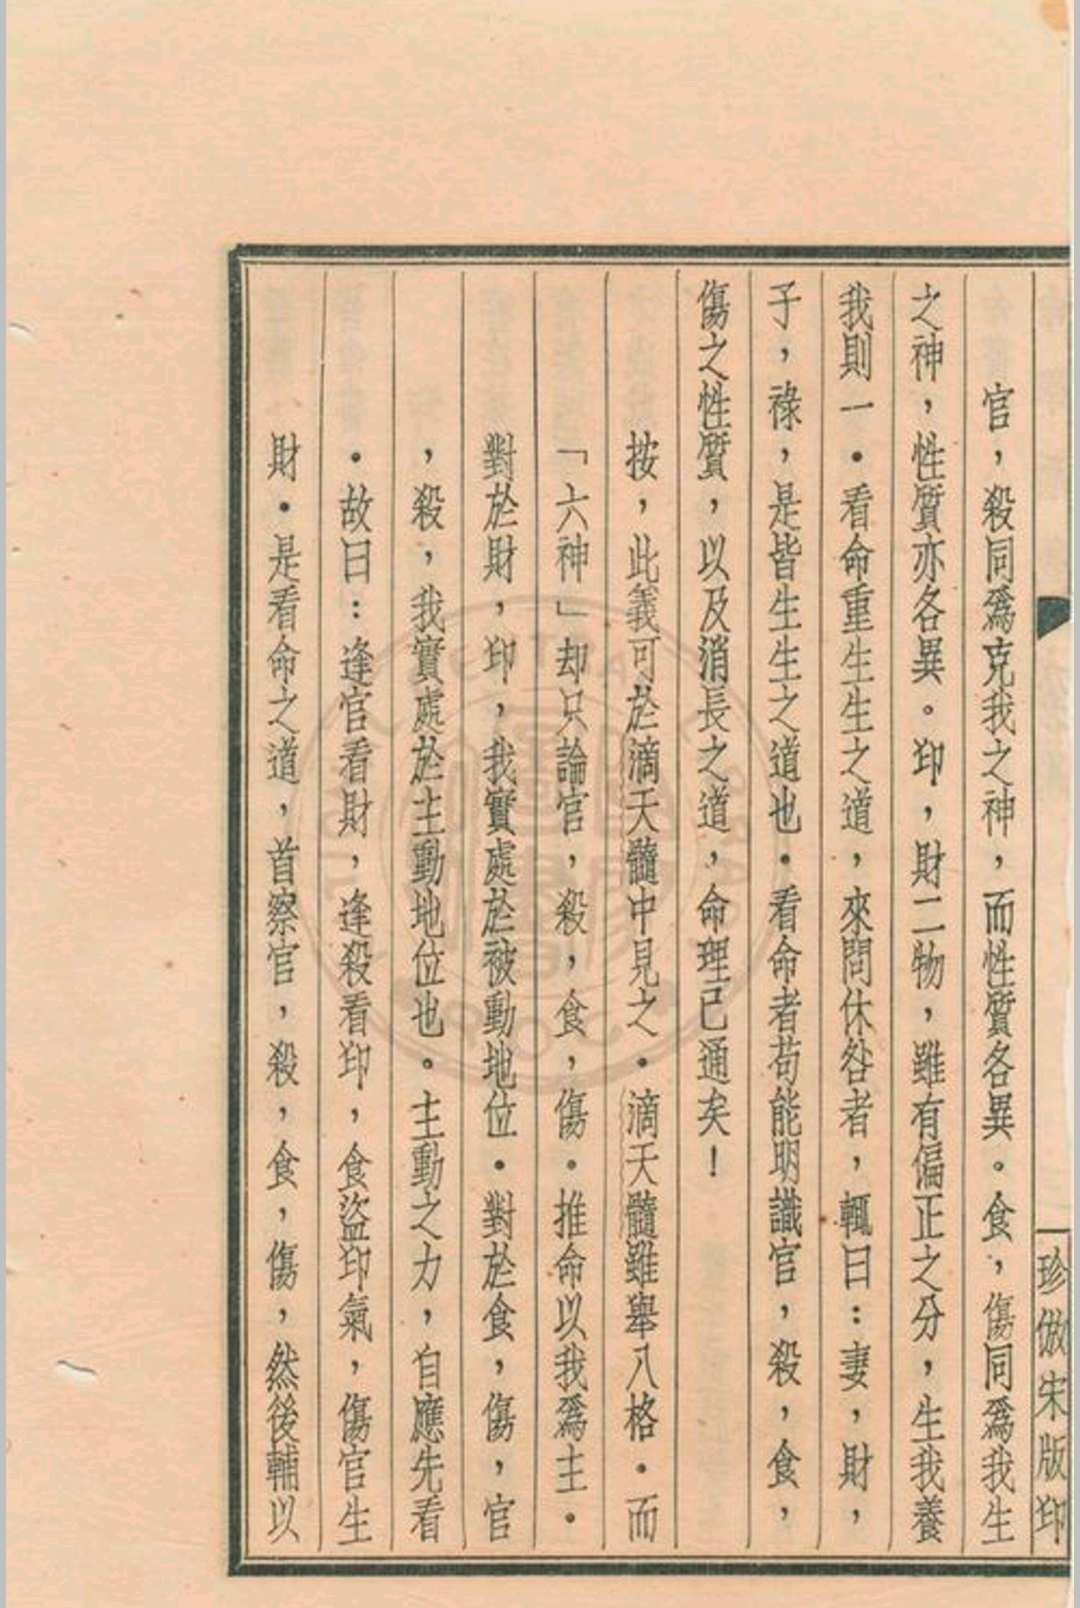 珍倣宋版印
官，殺同爲克我之神，而性質各異。食，傷同爲我生
之神，性質亦各異。印，財二物，雖有偏正之分，生我養
我則一．看命重生生之道，來問休咎者，輒曰：妻，財，
子，祿，是皆生生之道也．看命者苟能明識官，殺，食，
傷之性質，以及消長之道，命理已通矣！
按，此義可於滴天髓中見之．滴天髓雖舉八格．而
「六神」却只論官，殺，食，傷．推命以我爲主．
對於財，印，我實處於被動地位．對於食，傷，官
，殺，我實處於主動地位也。主動之力，自應先看
．故曰：逢官看財，逢殺看印，食盜印氣，傷官生
財．是看命之道，首察官，殺，食，傷，然後輔以